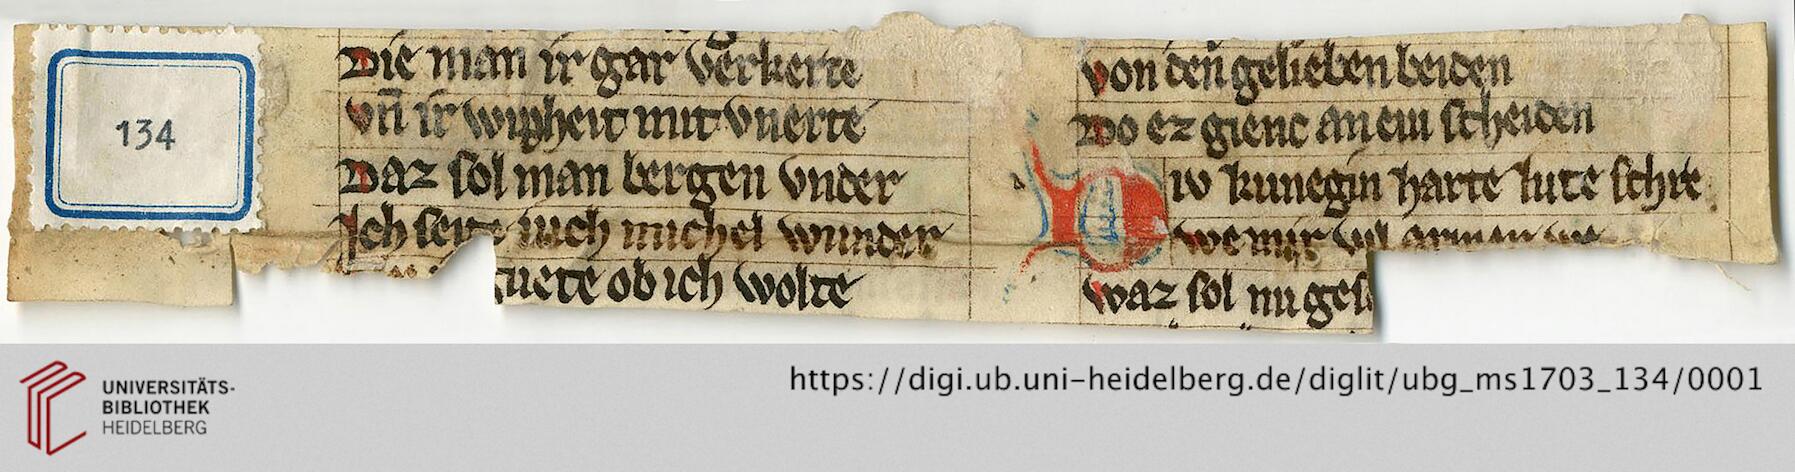 134
Die man ir gar verkerte
vñ ir wipheit mit vnerte
Daz sol man bergen vnder
Ich seite iuch michel wunder
ob ich wolte
von den gelieben beiden
Do ez gienc an ein scheiden
Div kunegin harte lute schre
we mir vil armen
waz sol nu
UNIVERSITÄTS-
BIBLIOTHEK
HEIDELBERG
https://digi.ub.uni-heidelberg.de/diglit/ubg_ms1703_134/0001